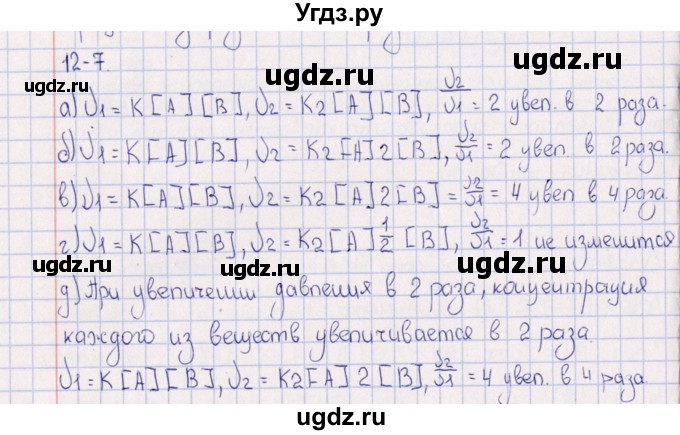 Угдз.ру
12-7.
ugdz.ru ugdz.ru
а) υ1 = K[A][B], υ2 = K2[A][B], υ2/υ1 = 2 увел. в 2 раза.
ugdz.ru
б) υ1 = K[A][B], υ2 = K2[A]2[B], υ2/υ1 = 2 увел. в 2 раза.
ugdz.ru ugdz.ru
в) υ1 = K[A][B], υ2 = K2[A]2[B] = υ2/υ1 = 4 увел в 4 раза
ugdz.ru
г) υ1 = K[A][B], υ2 = K2[A]1/2[B], υ2/υ1 = 1 не изменится
ugdz.ru ugdz.ru
д) При увеличении давления в 2 раза, концентрация
ugdz.ru
каждого из веществ увеличивается в 2 раза.
ugdz.ru ugdz.ru
υ1 = K[A][B], υ2 = K2[A]2[B], υ2/υ1 = 4 увел. в 4 раза.
ugdz.ru